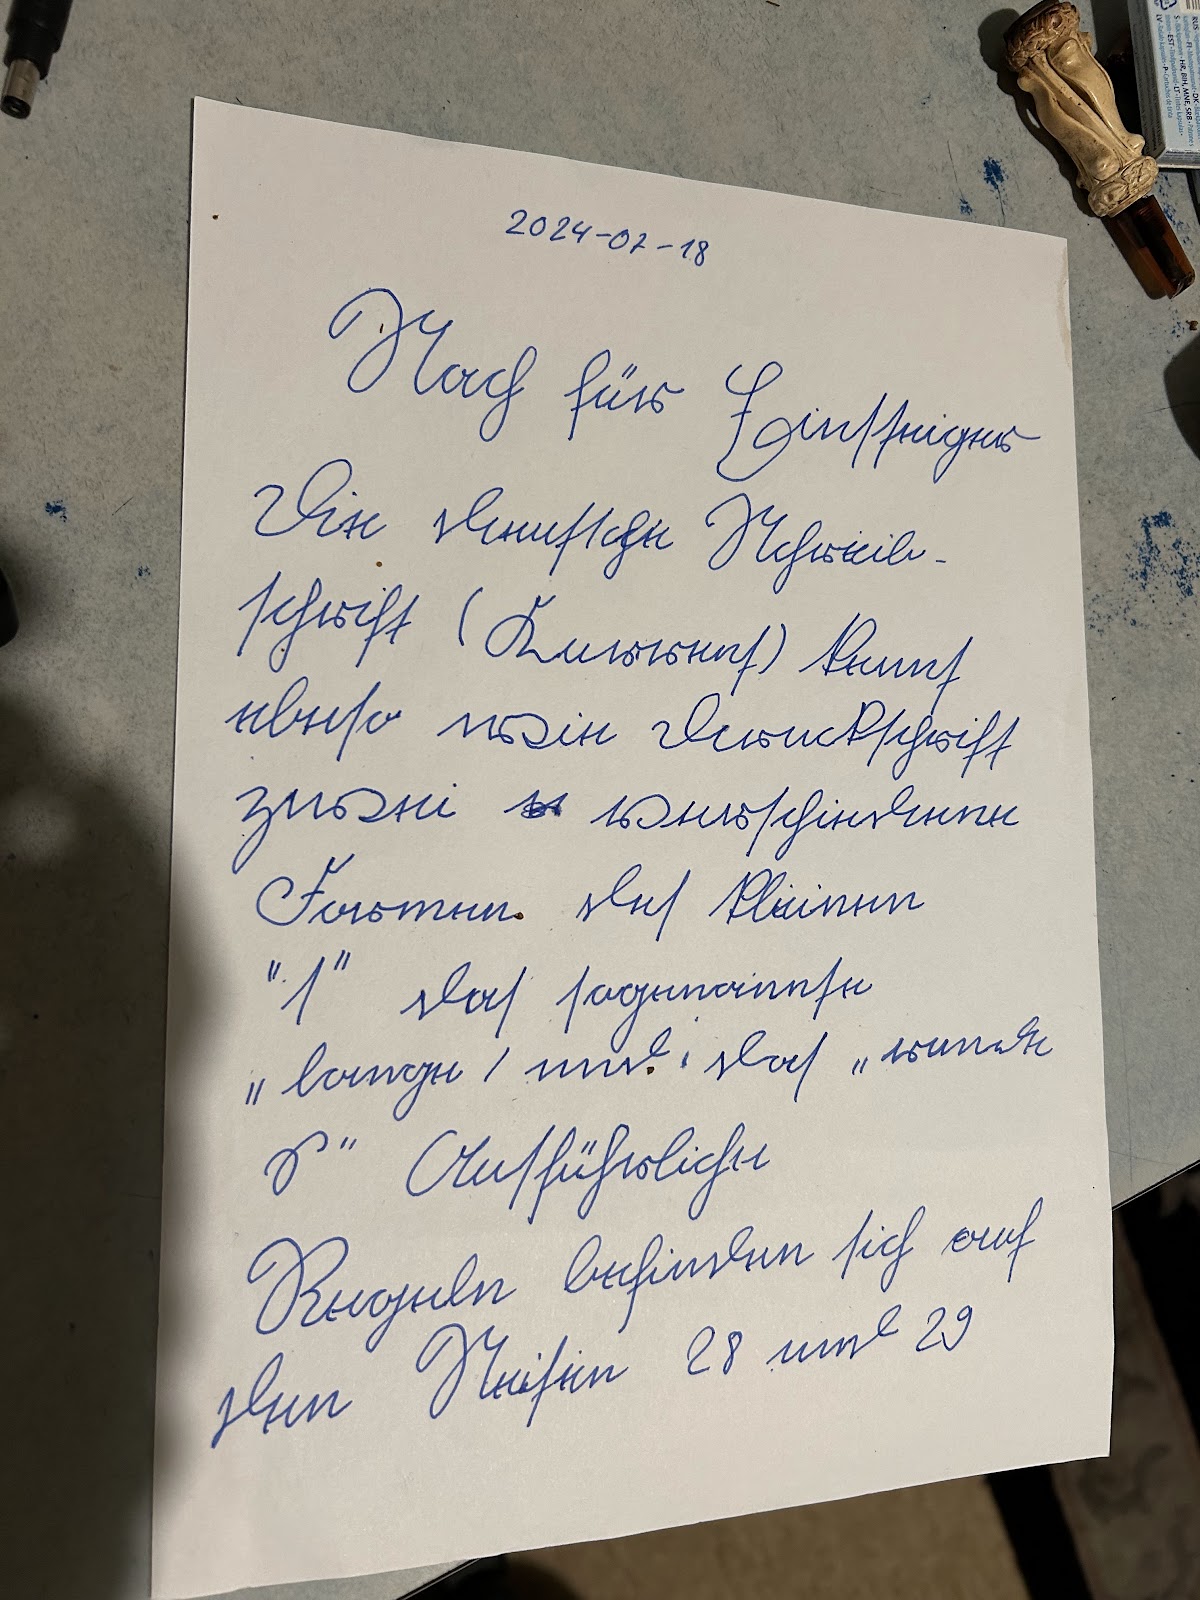 2024-07-18
Sach für Einsteiger
Die deutsche Schreib-
schrift (Kurrent) kennt
ebenso wie Druckschrift
zwei verschiedene
Formen des kleinen
"ſ" das sogenannte
„lange ſ und das „runde
s" Ausführliche
Regeln befinden sich auf
den Seiten 28 und 29